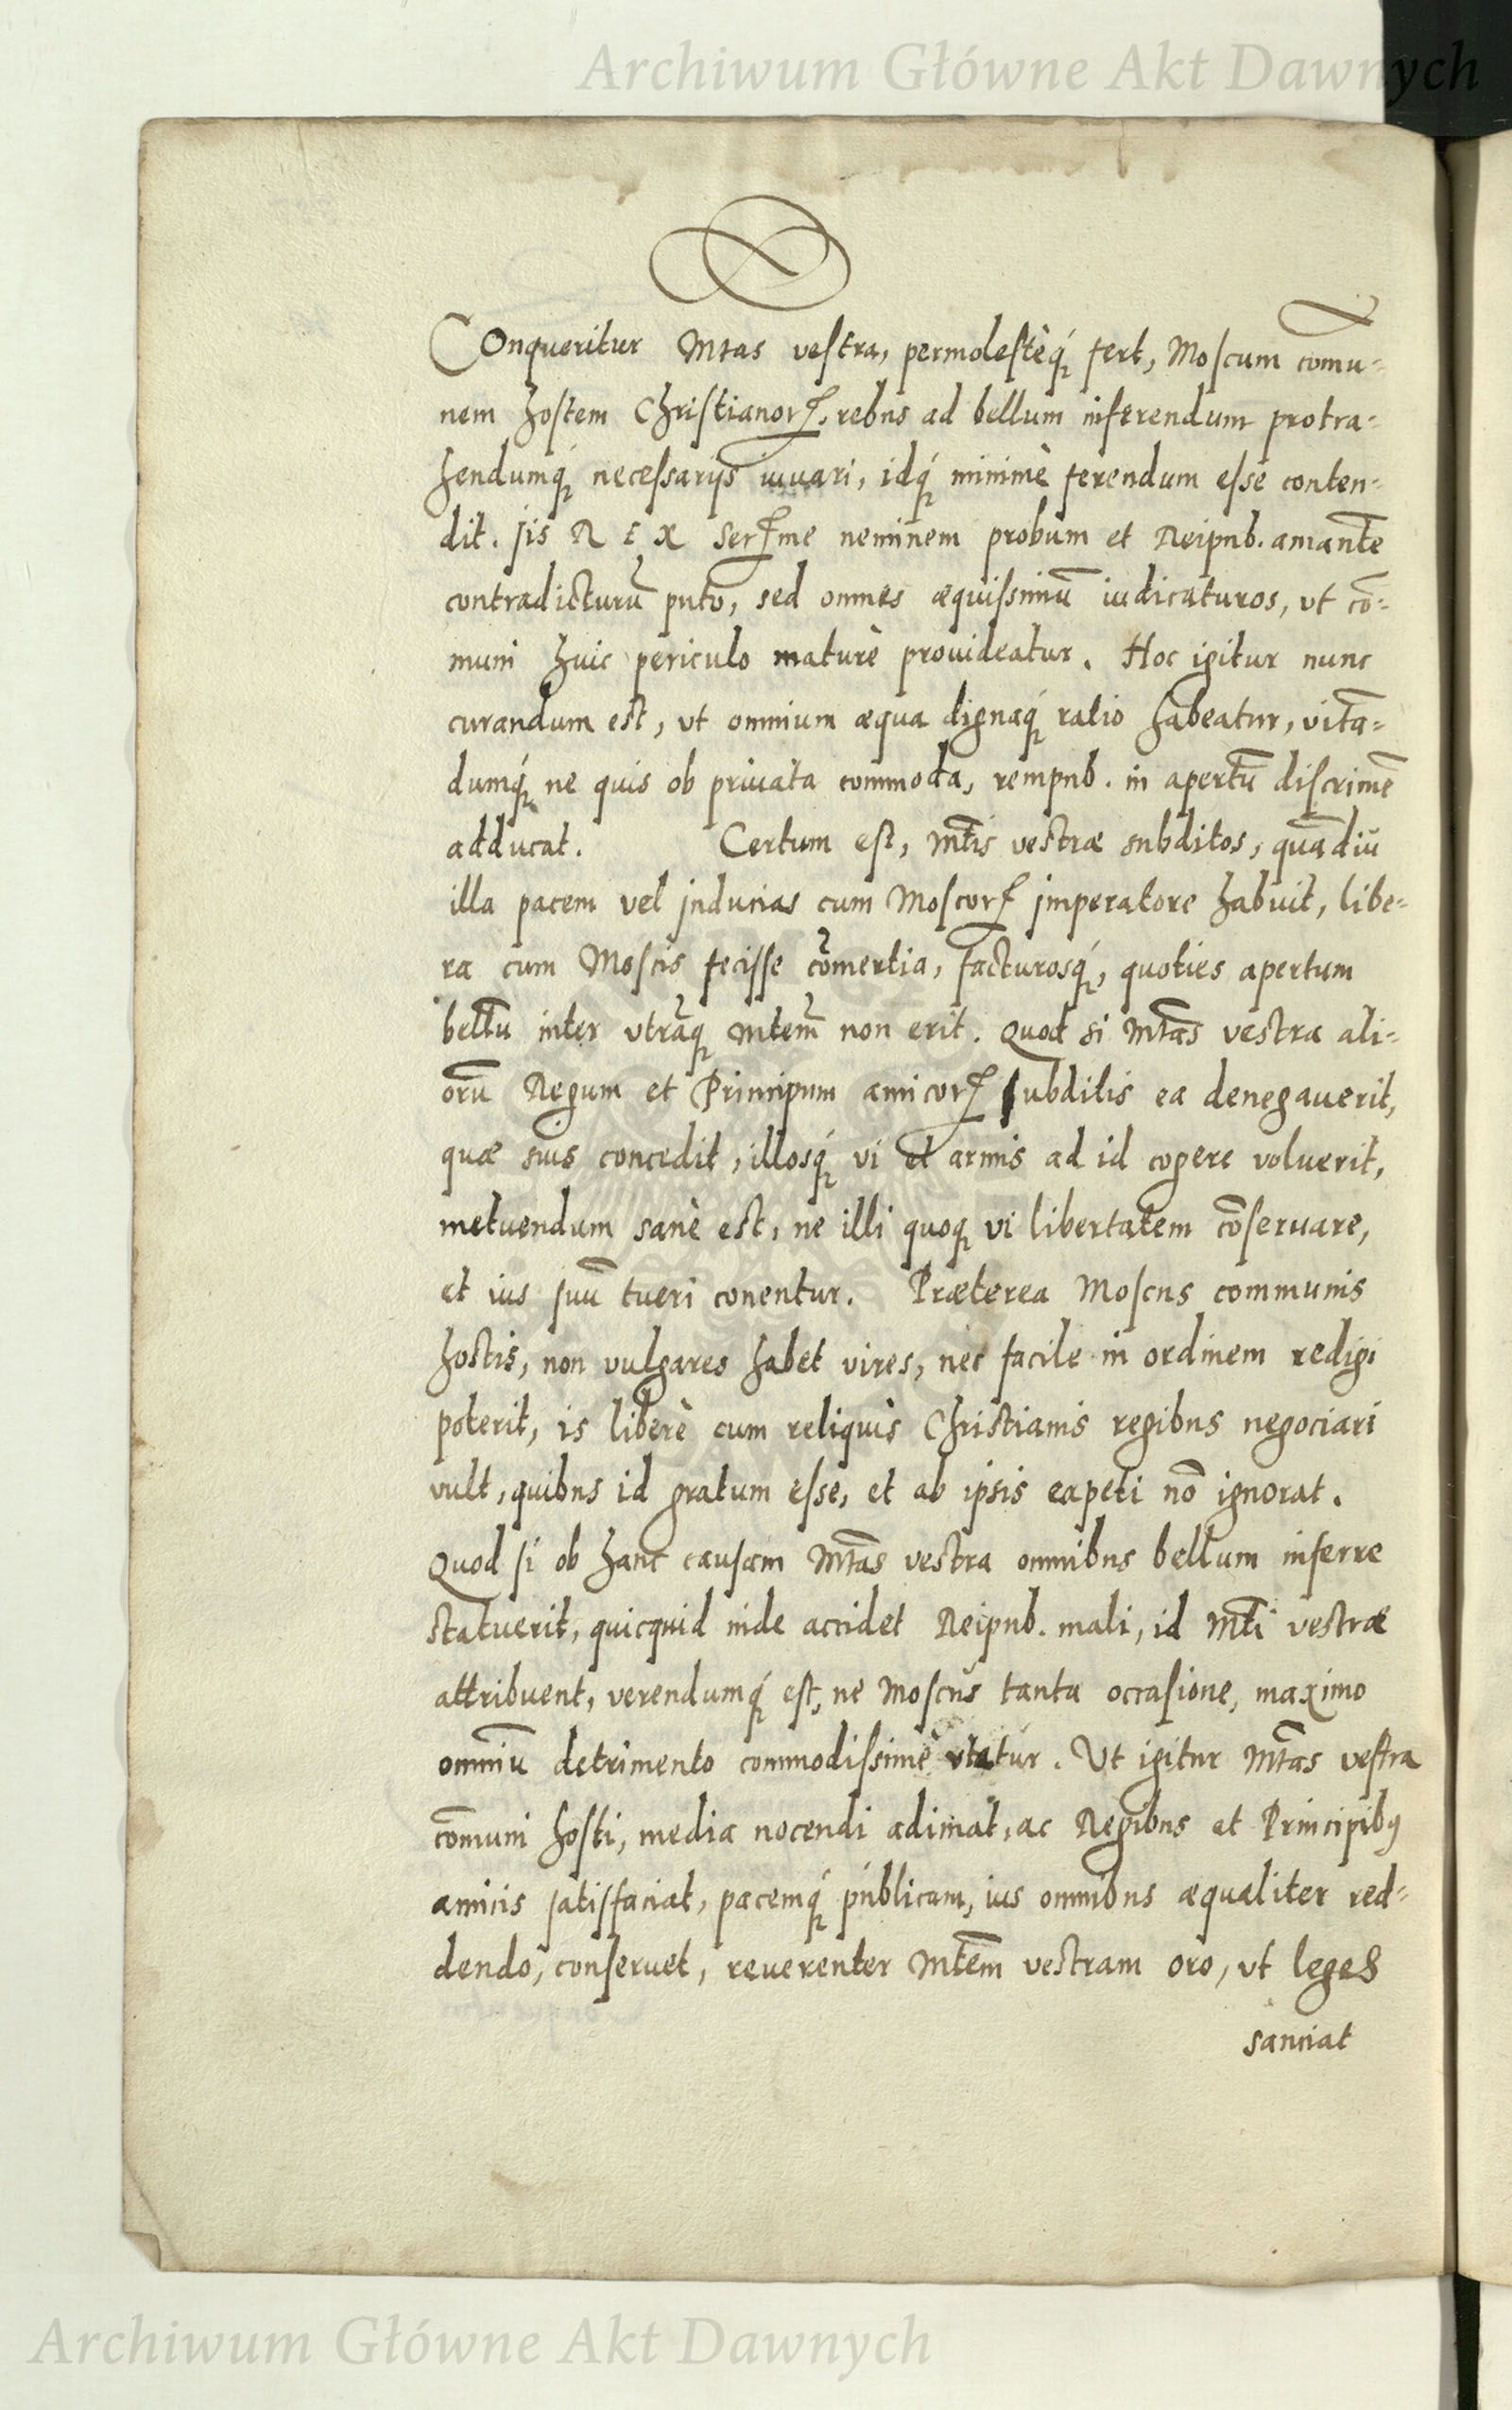 Archiwum Główne Akt Dawnych
COnqueritur Mtas vestra, permolestèq́ꝫ fert, Moscum comu-
nem hostem Christianorꝫ, rebus ad bellum inferendum protra-
hendumq́ꝫ necessarijs iuuari, idq́ꝫ minimè ferendum esse conten-
dit. Jis REX Serꝫme neminem probum et Reipub. amantẽ
contradicturũ puto, sed omnes æquissimũ iudicaturos, vt cõ-
muni huic periculo maturè prouideatur. Hoc igitur nunc
curandum est, vt omnium æqua dignaq́ꝫ ratio habeatur, vitã-
dumq́ꝫ ne quis ob priuata commoda, rempub. in apertũ discrimẽ
adducat. Certum est, Mtis vestræ subditos, quãdiu
illa pacem vel jnducias cum Moscorꝫ jmperatore habuit, libe-
ra cum Moscis fecisse cõmertia, facturosq́ꝫ, quoties apertum
bellũ inter vtrãqꝫ Mtem non erit. Quod si Mtas vestra ali-
orũ Regum et Principum amicorꝫ subditis ea denegauerit,
quæ suis concedit, illosq́ꝫ vi et armis ad id cogere voluerit,
metuendum sanè est, ne illi quoqꝫ vi libertatem cõseruare,
et ius suũ tueri conentur. Præterea Moscus communis
hostis, non vulgares habet vires, nec facile in ordinem redigi
poterit, is liberè cum reliquis Christianis regibus negociari
vult, quibus id gratum esse, et ab ipsis expeti nõ ignorat.
Quod si ob hanc causam Mtas vestra omnibus bellum inferre
statuerit, quicquid inde accidet Reipub. mali, id Mti vestræ
attribuent, verendumq́ꝫ est, ne Moscus tanta occasione, maximo
omniũ detrimento commodissimè vtatur. Vt igitur Mtas vestra
cõmuni hosti, media nocendi adimat, ac Regibus et Principibꝰ
amicis satisfaciat, pacemq́ꝫ publicam, ius omnibus æqualiter red-
dendo, conseruet, reuerenter Mtem vestram oro, vt leges
sanciat
Archiwum Główne Akt Dawnych